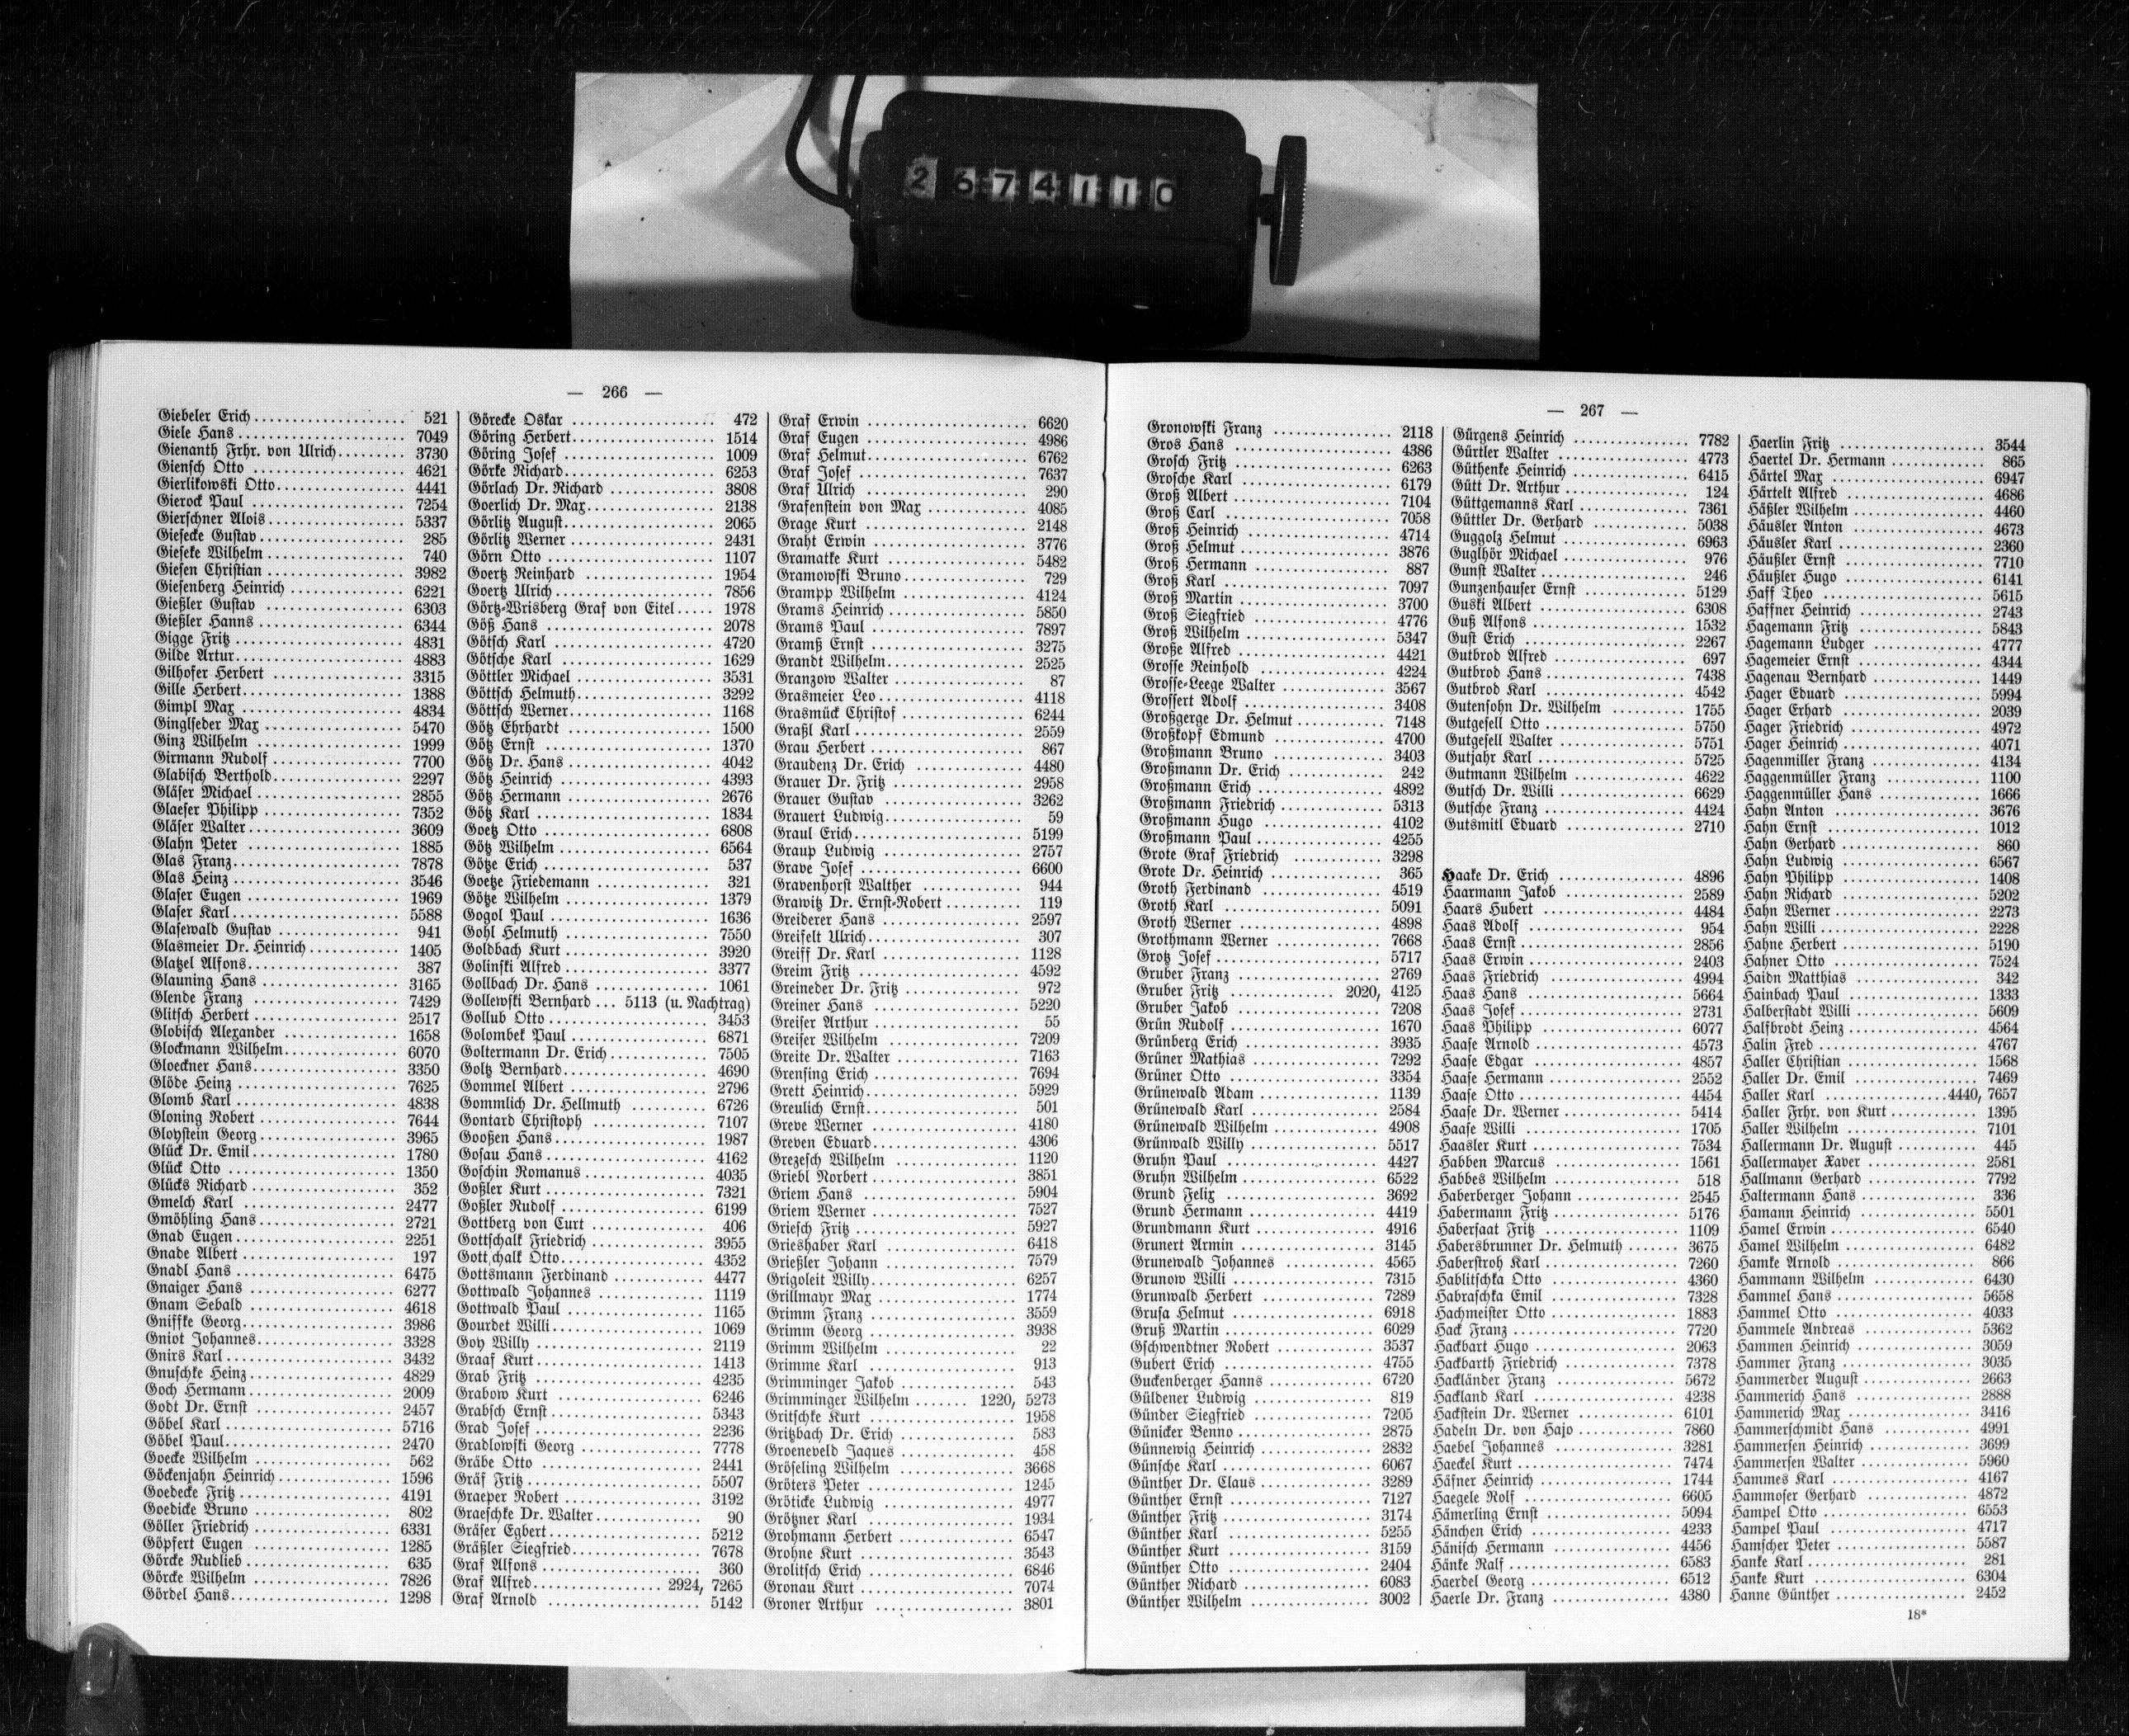 2674110
— 266 —
Giebeler Erich 521
Giele Hans 7049
Gienanth Frhr. von Ulrich 3730
Giensch Otto 4621
Gierlikowski Otto 4441
Gierock Paul 7254
Gierschner Alois 5337
Giesecke Gustav 285
Gieseke Wilhelm 740
Giesen Christian 3982
Giesenberg Heinrich 6221
Gießler Gustav 6303
Gießler Hanns 6344
Gigge Fritz 4831
Gilde Artur 4883
Gilhofer Herbert 3315
Gille Herbert 1388
Gimpl Max 4834
Ginglseder Max 5470
Ginz Wilhelm 1999
Girmann Rudolf 7700
Glabisch Berthold 2297
Gläser Michael 2855
Glaeser Philipp 7352
Gläser Walter 3609
Glahn Peter 1885
Glas Franz 7878
Glas Heinz 3546
Glaser Eugen 1969
Glaser Karl 5588
Glasewald Gustav 941
Glasmeier Dr. Heinrich 1405
Glatzel Alfons 387
Glauning Hans 3165
Glende Franz 7429
Glitsch Herbert 2517
Globisch Alexander 1658
Glockmann Wilhelm 6070
Gloeckner Hans 3350
Glöde Heinz 7625
Glomb Karl 4838
Gloning Robert 7644
Gloystein Georg 3965
Glück Dr. Emil 1780
Glück Otto 1350
Glücks Richard 352
Gmelch Karl 2477
Gmöhling Hans 2721
Gnad Eugen 2251
Gnade Albert 197
Gnadl Hans 6475
Gnaiger Hans 6277
Gnam Sebald 4618
Gniffke Georg 3986
Gniot Johannes 3328
Gnirs Karl 3432
Gnuschke Heinz 4829
Goch Hermann 2009
Godt Dr. Ernst 2457
Göbel Karl 5716
Göbel Paul 2470
Goecke Wilhelm 562
Göckenjahn Heinrich 1596
Goedecke Fritz 4191
Goedicke Bruno 802
Göller Friedrich 6331
Göpfert Eugen 1285
Görcke Rudlieb 635
Görcke Wilhelm 7826
Gördel Hans 1298
Görecke Oskar 472
Göring Herbert 1514
Göring Josef 1009
Görke Richard 6253
Görlach Dr. Richard 3808
Goerlich Dr. Max 2138
Görlitz August 2065
Görlitz Werner 2431
Görn Otto 1107
Goertz Reinhard 1954
Goertz Ulrich 7856
Görtz-Wrisberg Graf von Eitel 1978
Göß Hans 2078
Götsch Karl 4720
Götsche Karl 1629
Göttler Michael 3531
Göttsch Helmuth 3292
Göttsch Werner 1168
Götz Ehrhardt 1500
Götz Ernst 1370
Götz Dr. Hans 4042
Götz Heinrich 4393
Götz Hermann 2676
Götz Karl 1834
Goetz Otto 6808
Götz Wilhelm 6564
Götze Erich 537
Goetze Friedemann 321
Götze Wilhelm 1379
Gogol Paul 1636
Gohl Helmuth 7550
Goldbach Kurt 3920
Golinski Alfred 3377
Gollbach Dr. Hans 1061
Gollewski Bernhard ... 5113 (u. Nachtrag)
Gollub Otto 3453
Golombek Paul 6871
Goltermann Dr. Erich 7505
Goltz Bernhard 4690
Gommel Albert 2796
Gommlich Dr. Hellmuth 6726
Gontard Christoph 7107
Gooßen Hans 1987
Gosau Hans 4162
Goschin Romanus 4035
Goßler Kurt 7321
Goßler Rudolf 6199
Gottberg von Curt 406
Gottschalk Friedrich 3955
Gott chalk Otto 4352
Gottsmann Ferdinand 4477
Gottwald Johannes 1119
Gottwald Paul 1165
Gourdet Willi 1069
Goy Willy 2119
Graaf Kurt 1413
Grab Fritz 4235
Grabow Kurt 6246
Grabsch Ernst 5343
Grad Josef 2236
Gradlowski Georg 7778
Gräbe Otto 2441
Gräf Fritz 5507
Graeper Robert 3192
Graeschke Dr. Walter 90
Gräser Egbert 5212
Gräßler Siegfried 7678
Graf Alfons 360
Graf Alfred 2924, 7265
Graf Arnold 5142
Graf Erwin 6620
Graf Eugen 4986
Graf Helmut 6762
Graf Josef 7637
Graf Ulrich 290
Grafenstein von Max 4085
Grage Kurt 2148
Graht Erwin 3776
Gramatke Kurt 5482
Gramowski Bruno 729
Grampp Wilhelm 4124
Grams Heinrich 5850
Grams Paul 7897
Gramß Ernst 3275
Grandt Wilhelm 2525
Granzow Walter 87
Grasmeier Leo 4118
Grasmück Christof 6244
Graßl Karl 2559
Grau Herbert 867
Graudenz Dr. Erich 4480
Grauer Dr. Fritz 2958
Grauer Gustav 3262
Grauert Ludwig 59
Graul Erich 5199
Graup Ludwig 2757
Grave Josef 6600
Gravenhorst Walther 944
Grawitz Dr. Ernst-Robert 119
Greiderer Hans 2597
Greifelt Ulrich 307
Greiff Dr. Karl 1128
Greim Fritz 4592
Greineder Dr. Fritz 972
Greiner Hans 5220
Greiser Arthur 55
Greiser Wilhelm 7209
Greite Dr. Walter 7163
Grensing Erich 7694
Grett Heinrich 5929
Greulich Ernst 501
Greve Werner 4180
Greven Eduard 4306
Grezesch Wilhelm 1120
Griebl Norbert 3851
Griem Hans 5904
Griem Werner 7527
Griesch Fritz 5927
Grieshaber Karl 6418
Grießler Johann 7579
Grigoleit Willy 6257
Grillmayr Max 1774
Grimm Franz 3559
Grimm Georg 3938
Grimm Wilhelm 22
Grimme Karl 913
Grimminger Jakob 543
Grimminger Wilhelm 1220, 5273
Gritschke Kurt 1958
Gritzbach Dr. Erich 583
Groeneveld Jaques 458
Gröseling Wilhelm 3668
Gröters Peter 1245
Gröticke Ludwig 4977
Grötzner Karl 1934
Grohmann Herbert 6547
Grohne Kurt 3543
Grolitsch Erich 6846
Gronau Kurt 7074
Groner Arthur 3801
— 267 —
Gronowski Franz 2118
Gros Hans 4386
Grosch Fritz 6263
Grosche Karl 6179
Groß Albert 7104
Groß Carl 7058
Groß Heinrich 4714
Groß Helmut 3876
Groß Hermann 887
Groß Karl 7097
Groß Martin 3700
Groß Siegfried 4776
Groß Wilhelm 5347
Große Alfred 4421
Grosse Reinhold 4224
Grosse-Leege Walter 3567
Grossert Adolf 3408
Großgerge Dr. Helmut 7148
Großkopf Edmund 4700
Großmann Bruno 3403
Großmann Dr. Erich 242
Großmann Erich 4892
Großmann Friedrich 5313
Großmann Hugo 4102
Großmann Paul 4255
Grote Graf Friedrich 3298
Grote Dr. Heinrich 365
Groth Ferdinand 4519
Groth Karl 5091
Groth Werner 4898
Grothmann Werner 7668
Grotz Josef 5717
Gruber Franz 2769
Gruber Fritz 2020, 4125
Gruber Jakob 7208
Grün Rudolf 1670
Grünberg Erich 3935
Grüner Mathias 7292
Grüner Otto 3354
Grünewald Adam 1139
Grünewald Karl 2584
Grünewald Wilhelm 4908
Grünwald Willy 5517
Gruhn Paul 4427
Gruhn Wilhelm 6522
Grund Felix 3692
Grund Hermann 4419
Grundmann Kurt 4916
Grunert Armin 3145
Grunewald Johannes 4565
Grunow Willi 7315
Grunwald Herbert 7289
Grusa Helmut 6918
Gruß Martin 6029
Gschwendtner Robert 3537
Gubert Erich 4755
Guckenberger Hanns 6720
Güldener Ludwig 819
Günder Siegfried 7205
Günicker Benno 2875
Günnewig Heinrich 2832
Günsche Karl 6067
Günther Dr. Claus 3289
Günther Ernst 7127
Günther Fritz 3174
Günther Karl 5255
Günther Kurt 3159
Günther Otto 2404
Günther Richard 6083
Günther Wilhelm 3002
Gürgens Heinrich 7782
Gürtler Walter 4773
Güthenke Heinrich 6415
Gütt Dr. Arthur 124
Güttgemanns Karl 7361
Güttler Dr. Gerhard 5038
Guggolz Helmut 6963
Guglhör Michael 976
Gunst Walter 246
Gunzenhauser Ernst 5129
Guski Albert 6308
Guß Alfons 1532
Gust Erich 2267
Gutbrod Alfred 697
Gutbrod Hans 7438
Gutbrod Karl 4542
Gutensohn Dr. Wilhelm 1755
Gutgesell Otto 5750
Gutgesell Walter 5751
Gutjahr Karl 5725
Gutmann Wilhelm 4622
Gutsch Dr. Willi 6629
Gutsche Franz 4424
Gutsmitl Eduard 2710
Haake Dr. Erich 4896
Haarmann Jakob 2589
Haars Hubert 4484
Haas Adolf 954
Haas Ernst 2856
Haas Erwin 2403
Haas Friedrich 4994
Haas Hans 5664
Haas Josef 2731
Haas Philipp 6077
Haase Arnold 4573
Haase Edgar 4857
Haase Hermann 2552
Haase Otto 4454
Haase Dr. Werner 5414
Haase Willi 1705
Haasler Kurt 7534
Habben Marcus 1561
Habbes Wilhelm 518
Haberberger Johann 2545
Habermann Fritz 5176
Habersaat Fritz 1109
Habersbrunner Dr. Helmuth 3675
Haberstroh Karl 7260
Hablitschka Otto 4360
Habraschka Emil 7328
Hachmeister Otto 1883
Hack Franz 7720
Hackbart Hugo 2063
Hackbarth Friedrich 7378
Hackländer Franz 5672
Hackland Karl 4238
Hackstein Dr. Werner 6101
Hadeln Dr. von Hajo 7860
Haebel Johannes 3281
Haeckel Kurt 7474
Häfner Heinrich 1744
Haegele Rolf 6605
Hämerling Ernst 5094
Hänchen Erich 4233
Hänisch Hermann 4456
Hänke Ralf 6583
Haerdel Georg 6512
Haerle Dr. Franz 4380
Haerlin Fritz 3544
Haertel Dr. Hermann 865
Härtel Max 6947
Härtelt Alfred 4686
Häßler Wilhelm 4460
Häusler Anton 4673
Häusler Karl 2360
Häußler Ernst 7710
Häußler Hugo 6141
Haff Theo 5615
Haffner Heinrich 2743
Hagemann Fritz 5843
Hagemann Ludger 4777
Hagemeier Ernst 4344
Hagenau Bernhard 1449
Hager Eduard 5994
Hager Erhard 2039
Hager Friedrich 4972
Hager Heinrich 4071
Hagenmiller Franz 4134
Haggenmüller Franz 1100
Haggenmüller Hans 1666
Hahn Anton 3676
Hahn Ernst 1012
Hahn Gerhard 860
Hahn Ludwig 6567
Hahn Philipp 1408
Hahn Richard 5202
Hahn Werner 2273
Hahn Willi 2228
Hahne Herbert 5190
Hahner Otto 7524
Haidn Matthias 342
Hainbach Paul 1333
Halberstadt Willi 5609
Halfbrodt Heinz 4564
Halin Fred 4767
Haller Christian 1568
Haller Dr. Emil 7469
Haller Karl 4440, 7657
Haller Frhr. von Kurt 1395
Haller Wilhelm 7101
Hallermann Dr. August 445
Hallermayer Xaver 2581
Hallmann Gerhard 7792
Haltermann Hans 336
Hamann Heinrich 5501
Hamel Erwin 6540
Hamel Wilhelm 6482
Hamke Arnold 866
Hammann Wilhelm 6430
Hammel Hans 5658
Hammel Otto 4033
Hammele Andreas 5362
Hammen Heinrich 3059
Hammer Franz 3035
Hammerder August 2663
Hammerich Hans 2888
Hammerich Max 3416
Hammerschmidt Hans 4991
Hammersen Heinrich 3699
Hammersen Walter 5960
Hammes Karl 4167
Hammoser Gerhard 4872
Hampel Otto 6553
Hampel Paul 4717
Hamscher Peter 5587
Hanke Karl 281
Hanke Kurt 6304
Hanne Günther 2452
18*